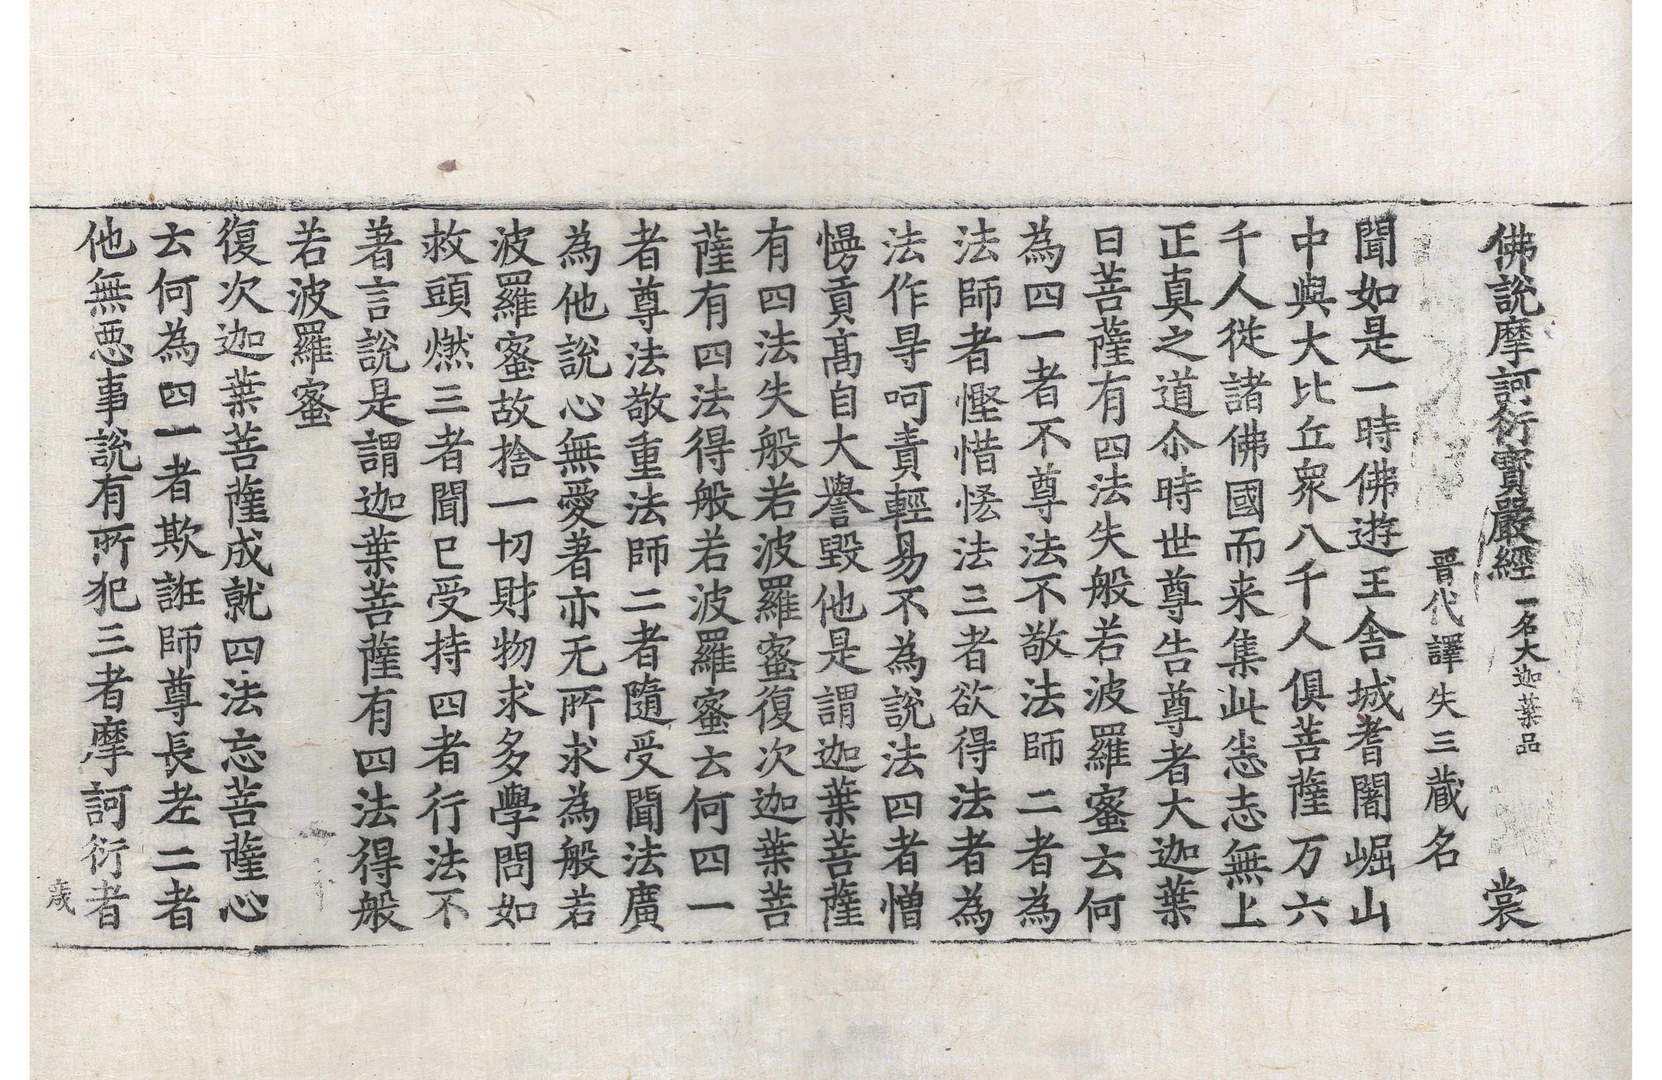 佛說摩訶衍寶嚴經一名大迦葉品 裳
晉代譯失三藏名
聞如是一時佛遊王舍城耆闍崛山
中與大比丘衆八千人俱菩薩万六
千人從諸佛國而来集此悉志無上
正真之道尒時世尊告尊者大迦葉
曰菩薩有四法失般若波羅蜜云何
為四一者不尊法不敬法師二者為
法師者慳惜悋法三者欲得法者為
法作㝵呵責輕易不為說法四者憎
慢貢高自大譽毀他是謂迦葉菩薩
有四法失般若波羅蜜復次迦葉菩
薩有四法得般若波羅蜜云何四一
者尊法敬重法師二者隨受聞法廣
為他說心無愛著亦无所求為般若
波羅蜜故捨一切財物求多學問如
救頭燃三者聞已受持四者行法不
著言說是謂迦葉菩薩有四法得般
若波羅蜜
復次迦葉菩薩成就四法忘菩薩心
云何為四一者欺誑師尊長老二者
他無悪事說有所犯三者摩訶衍者
歲